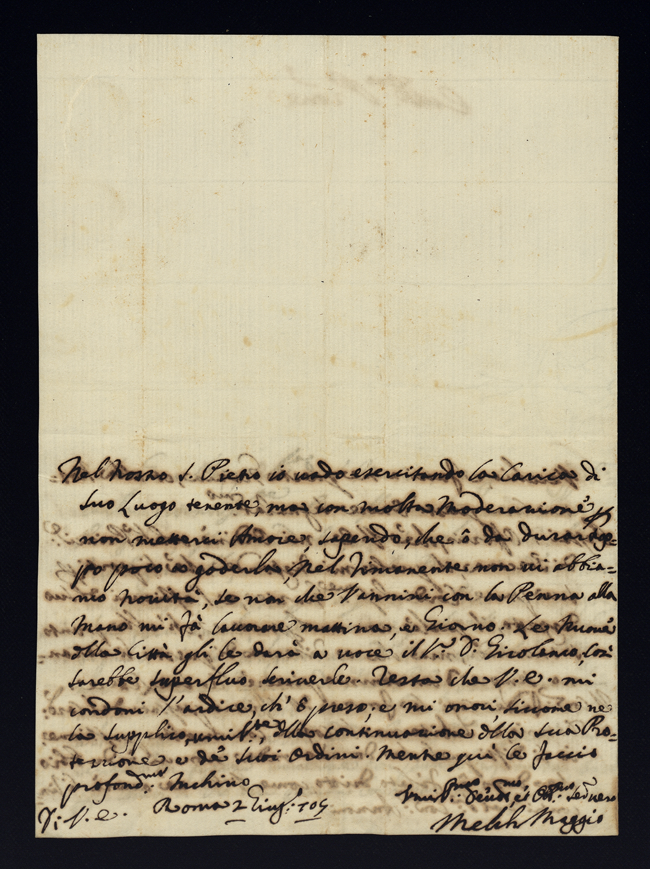 Nel nostro S. Pietro io vado esercitando la Carica di
suo Luogo tenente, ma con molta Moderazione p
non mettervi Amore, sapendo, che ò da durar trop-
po poco a goderla, Nel rimanente non vi abbia-
mo novità, se non che Vannini con la Penna alla
mano mi fà lavorare mattina, e Giorno. Le Nuove
dlla Città gli le darà a voce il Sr. D. Girolamo, così
sarebbe superfluo scriverle. Resta che V. e. mi
condoni l'ardire, ch' ò preso, e mi onori, siccome ne
la supplico, umilte, dlla continuazione dlla sua Pro-
tezzione e de suoi ordini. Mentre qui le faccio
profondmo Inchino
Di V. e. Roma 2 Giug. 705
Umilmo Devmo et Obmo Servre
Melch Maggio